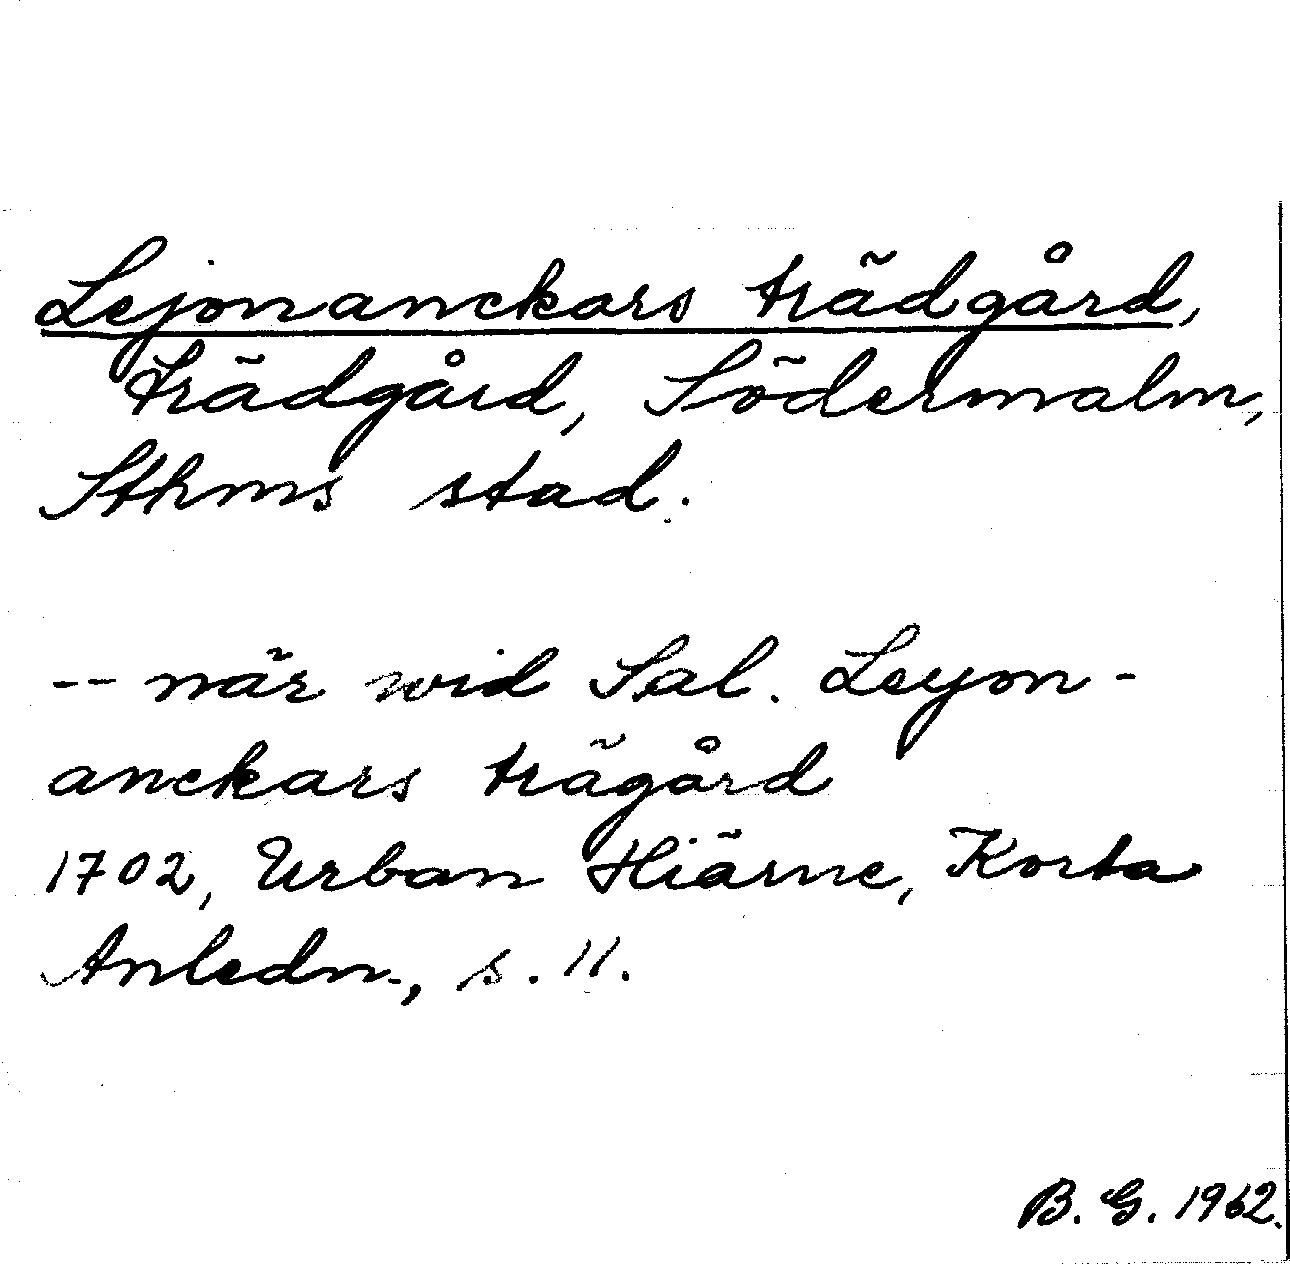 Lejonanckars trädgård,
trädgård, Södermalm,
Sthms stad.
-- när wid Sal. Leyon-
anckars trägård
1702, Urban Hiärne, Korta
Anledn., s. 11.
B. G. 1962.